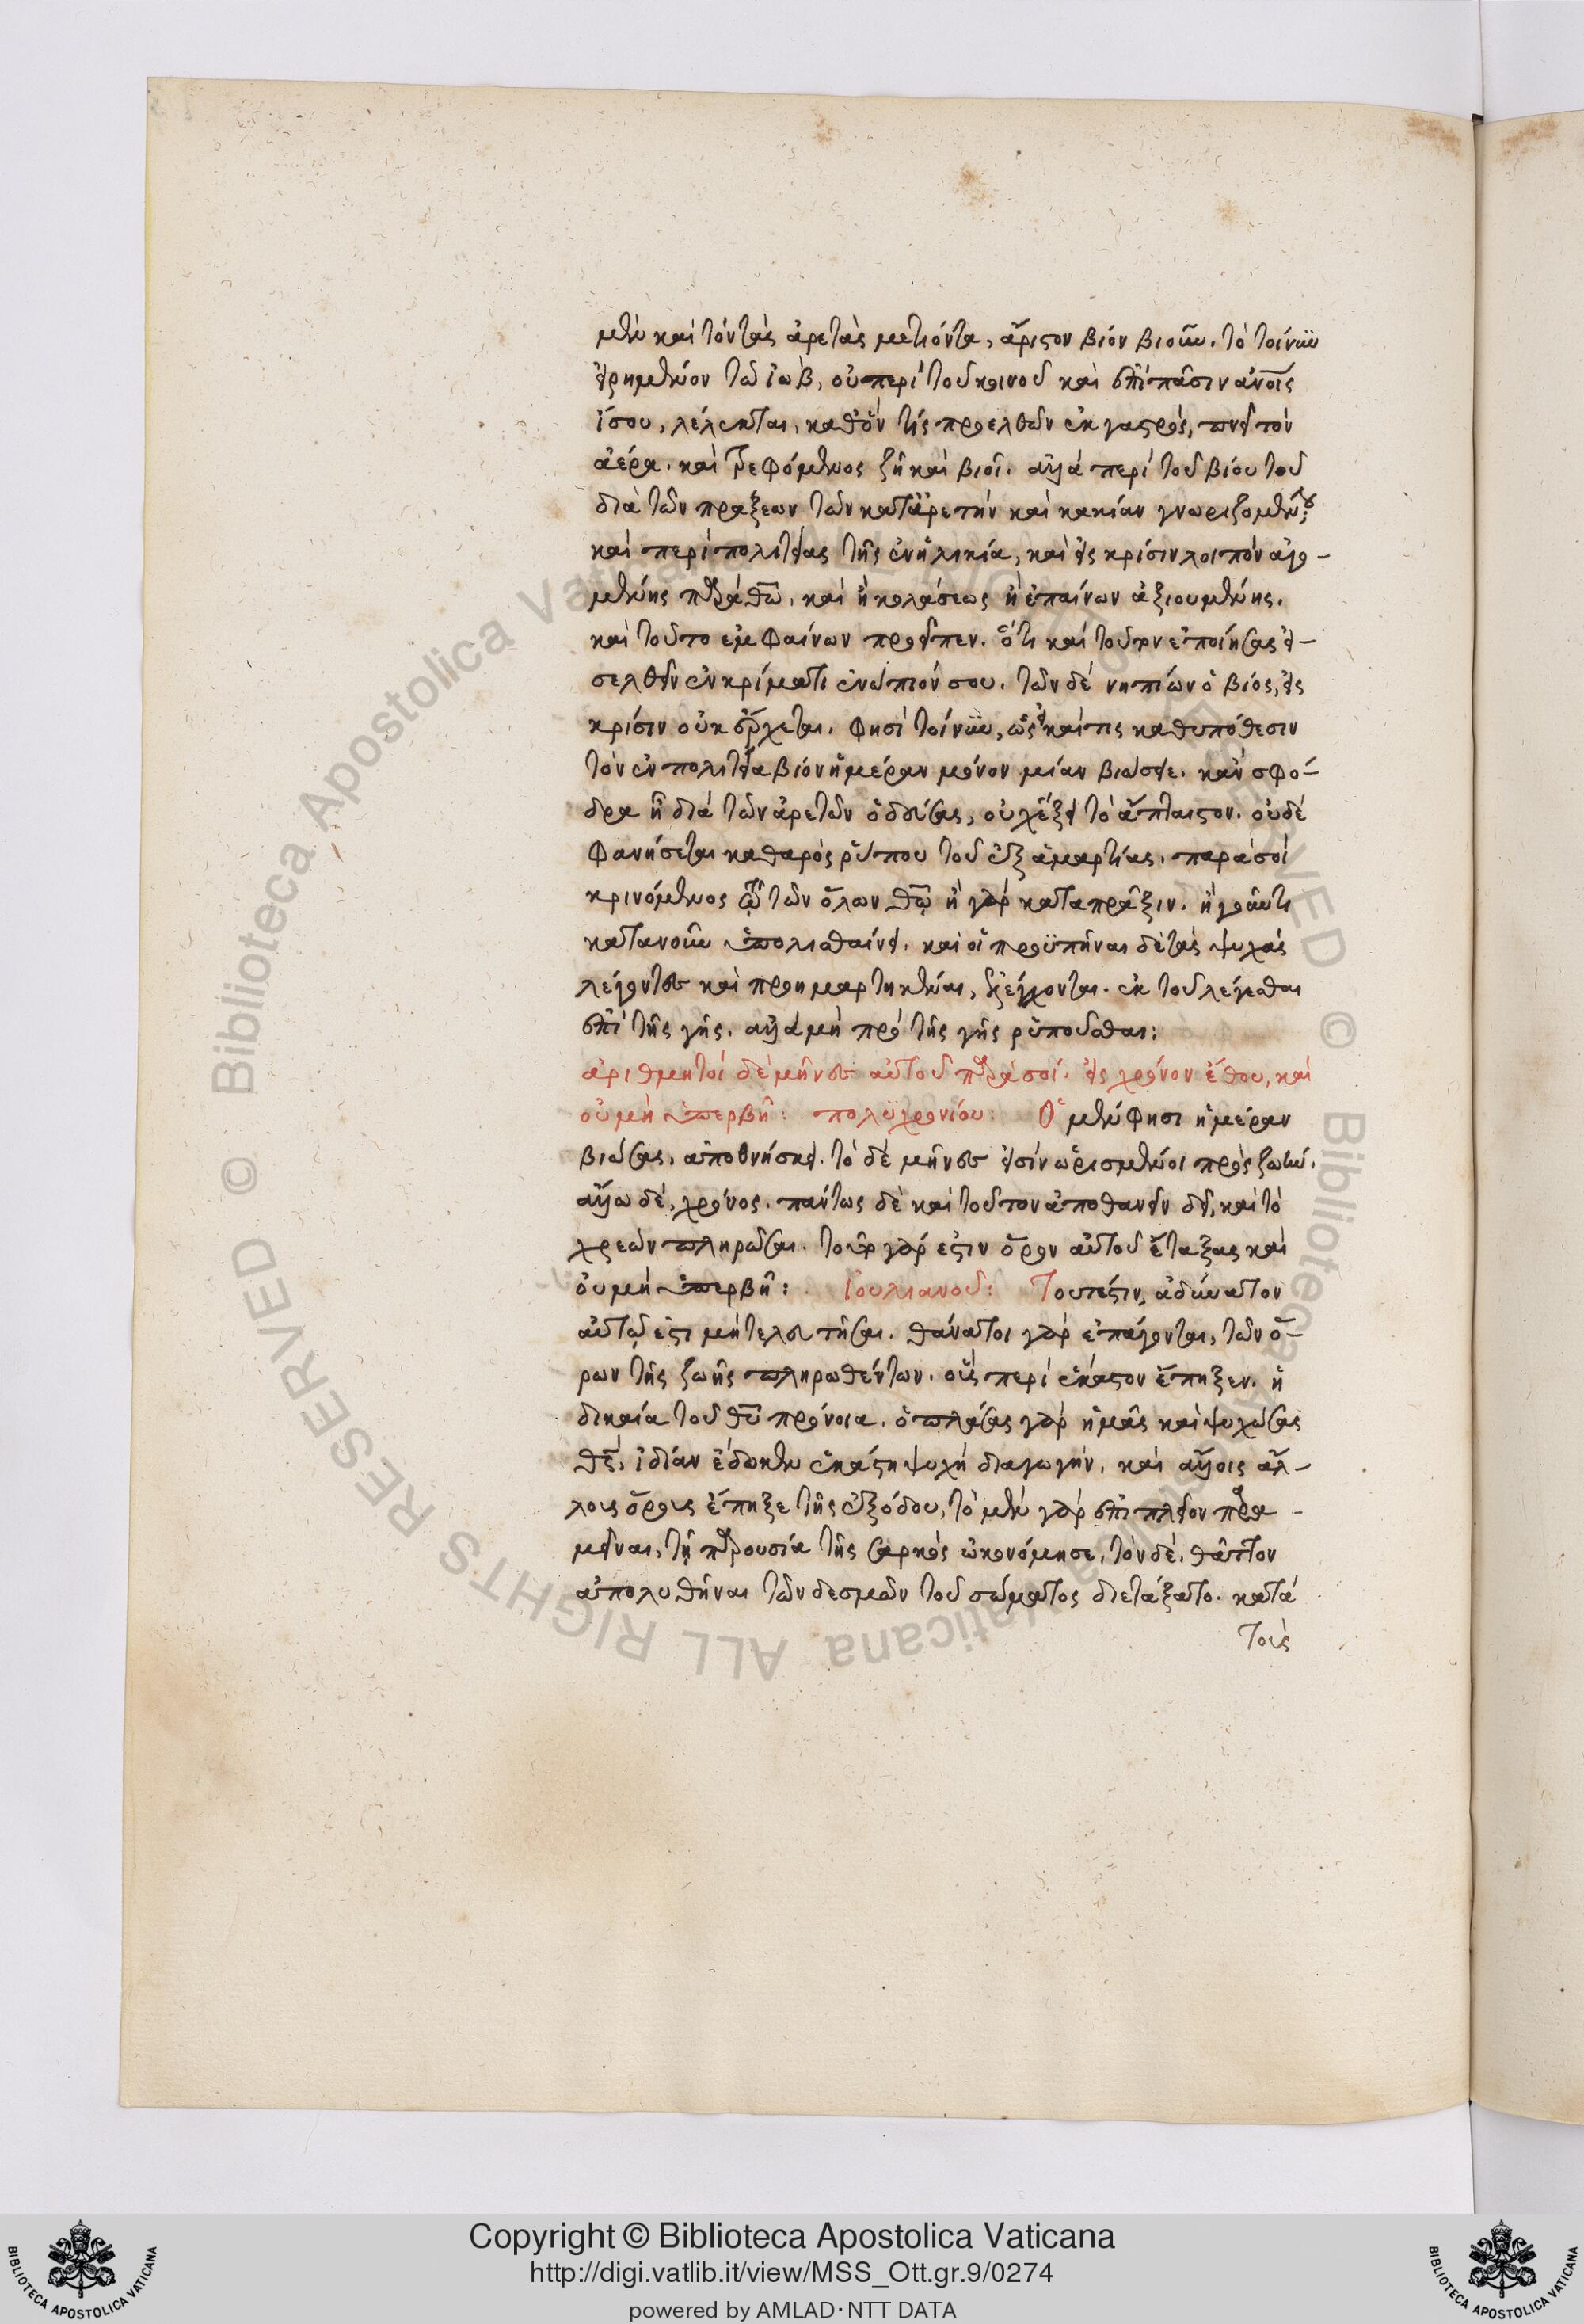 μὲν καὶ τὸν τὰς ἀρετὰς μετιόντα, ἄριστον βίον βιοῦν. τὸ τοίνυν
εἰρημένον τῶ ἰὼβ, οὐ περὶ τοῦ κοινοῦ καὶ ἐπὶ πᾶσιν ἀνοις
ἴσου, λέλεκται, καθ' ὅν τίς προελθὼν ἐκ γαστρὸς, πνεῖ τὸν
ἀέρα. καὶ τρεφόμενος ζῆ καὶ βιοῖ. ἀλλὰ περὶ τοῦ βίου τοῦ
διὰ τῶν πράξεων τῶν κατ' ἀρετὴν καὶ κακίαν γνωριζομένου;
καὶ περὶ πολιτείας τῆς ἐν ἡλικία, καὶ εἰς κρίσιν λοιπὸν ἀγο-
μένης παρὰ θῶ, καὶ ἢ κολάσεως ἢ ἐπαίνων ἀξιουμένης.
καὶ τοῦτο ἐμφαίνων προεῖπεν. ὅτι καὶ τοῦτον ἐποίησας εἰ-
σελθεῖν ἐν κρίματι ἐνώπιόν σου. τῶν δὲ νηπίων ὁ βίος, εἰς
κρίσιν οὐκ ἔρχεται. φησὶ τοίνυν, ὡς εἰ καί τις καθ' υπόθεσιν
τὸν ἐν πολιτεία βίον ἡμέραν μόνον μίαν βιώσειε. κἂν σφό-
δρα ἢ διὰ τῶν ἀρετῶν ὁδεύσας, οὐχ ἕξει τὸ ἄπταιστον. οὐδὲ
φανήσεται καθαρὸς ῥύπου τοῦ ἐξ ἁμαρτίας, παρὰ σοὶ
κρινόμενος τῶ τῶν ὅλων θῶ ἢ γὰρ κατα πρᾶξιν. ἢ γοῦν τι
κατανοῦν ὑπολισθαίνει. καὶ οἱ προϋπῆναι δὲ τὰς ψυχὰς
λέγοντες καὶ προημαρτηκέναι, διελέγχονται. ἐκ τοῦ λέγεσθαι
ἐπὶ τῆς γῆς. ἀλλὰ μὴ πρὸ τῆς γῆς ρυποῦσθαι:
ἀριθμητοὶ δὲ μῆνες αὐτοῦ παρὰ σοί. εἰς χρόνον ἔθου, καὶ
οὐ μὴ ὑπερβῆ: πολυχρονίου: Ὁ μὲν φησι ἡμέραν
βιώσας, ἀποθνήσκει. τὸ δὲ μῆνες εἰσὶν ὡρισμένοι πρὸς ζωήν.
ἄλλω δὲ, χρόνος. πάντως δὲ καὶ τοῦτον ἀποθανεῖν δεῖ, καὶ τὸ
χρεὼν πληρῶσαι. τοῦτο γάρ ἐστιν ὅρον αὐτοῦ ἔταξας καὶ
οὐ μὴ ὑπερβῆ: Ἰουλιανοῦ: Τουτέστιν, ἀδύνατον
αὐτῶ ἐστι μὴ τελευτῆσαι. θάνατοι γὰρ ἐπάγονται, τῶν ὅ-
ρων τῆς ζωῆς πληρωθέντων. οὓς περὶ ἕκαστον ἔπηξεν. ἡ
δικαία τοῦ θῦ πρόνοια. ὁ πλάσας γὰρ ἡμᾶς καὶ ψυχώσας
θς, ἰδίαν ἔδωκεν ἑκάστη ψυχῆ διαγωγὴν, καὶ ἄλλοις ἄλ-
λους ὅρους ἔπηξε τῆς ἐξόδου, τὸ μὲν γὰρ ἐπὶ πλεῖον παρα-
μεῖναι, τῆ παρουσία τῆς σαρκὸς ὠκονόμησε, τὸν δὲ, θᾶττον
ἀπολυθῆναι τῶν δεσμῶν τοῦ σώματος διετάξατο. κατὰ
τοὺς
Copyright © Biblioteca Apostolica Vaticana
http://digi.vatlib.it/view/MSS_Ott.gr.9/0274
powered by AMLAD·NTT DATA
BIBLIOTECA APOSTOLICA VATICANA
BIBLIOTECA APOSTOLICA VATICANA
© Biblioteca Apostolica Vaticana ALL RIGHTS RESERVED